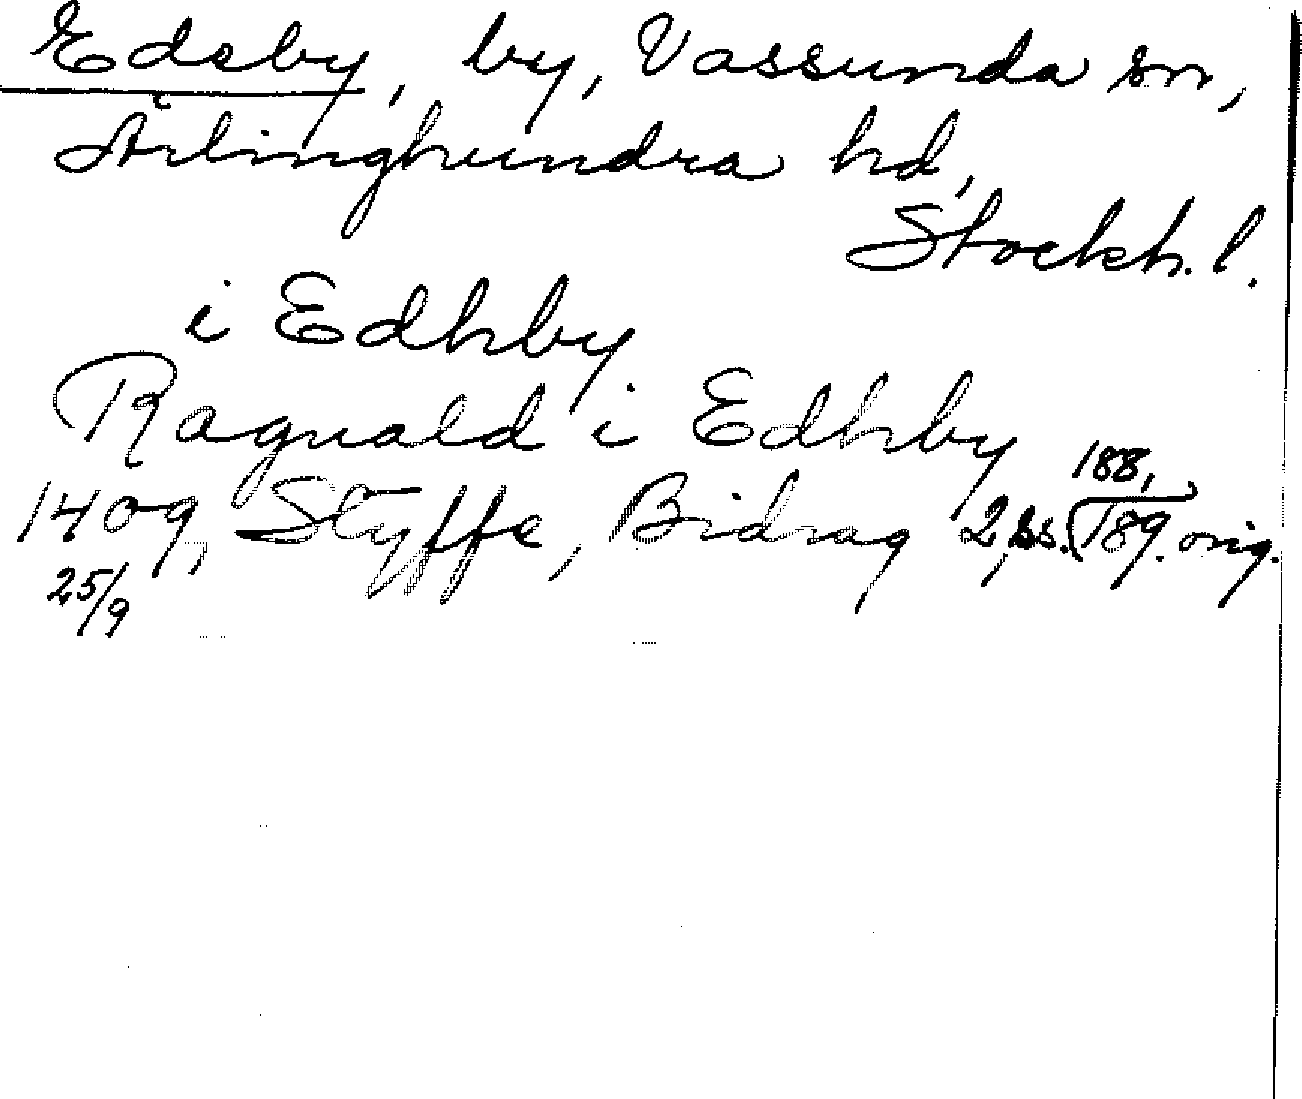 Edeby, by, Vassunda sn,
Ärlinghundra hd,
Stockh. l.
i Edhby
Raguald i Edhby
1409, Styffe, Bidrag 2, ss. 188, 189. orig.
25/9